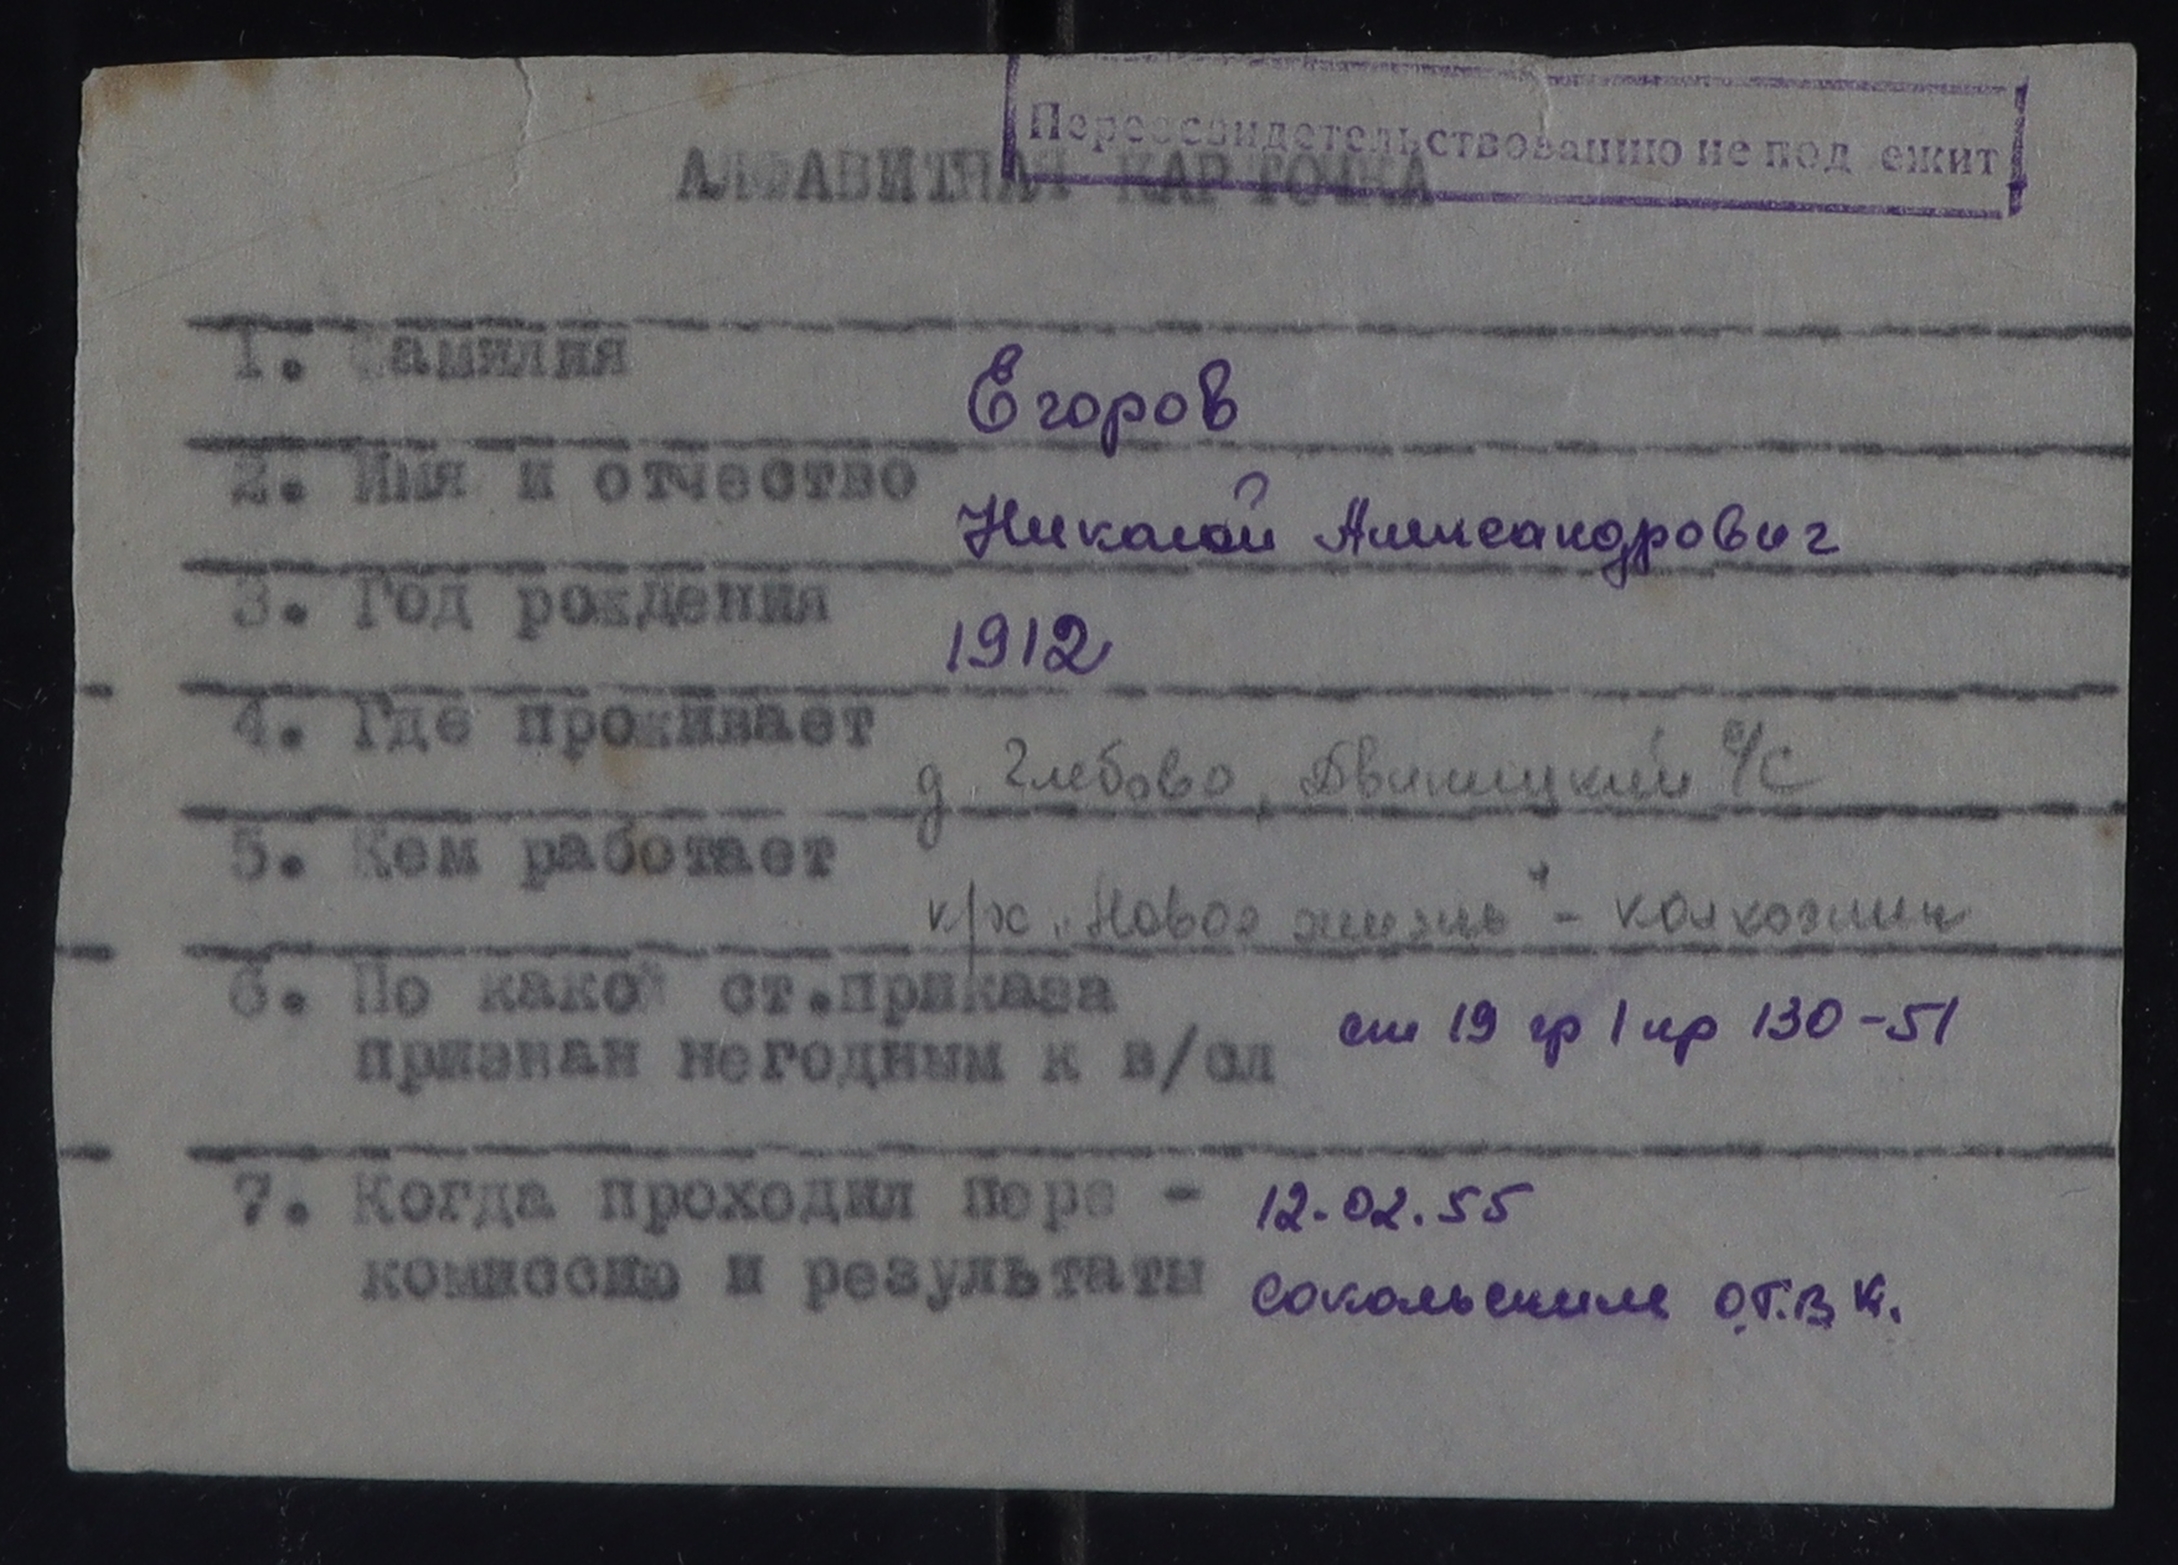 Переосвидетельствованию не под ежит
АЛФАВИТНАЯ КАРТОЧКА
1. Фамилия Егоров
2. Имя и отчество Николай Александрович
3. Год рождения 1912
4. Где проживает д. Глебово, Двиницкий с/с
5. Кем работает к/х "Новая жизнь" - колхозник
6. По какой ст.приказа
признан негодным к в/сл ст 19 гр 1 пр 130-51
7. Когда проходил пере - 12.02.55
комиссию и результаты Сокольским О.Г.В К.